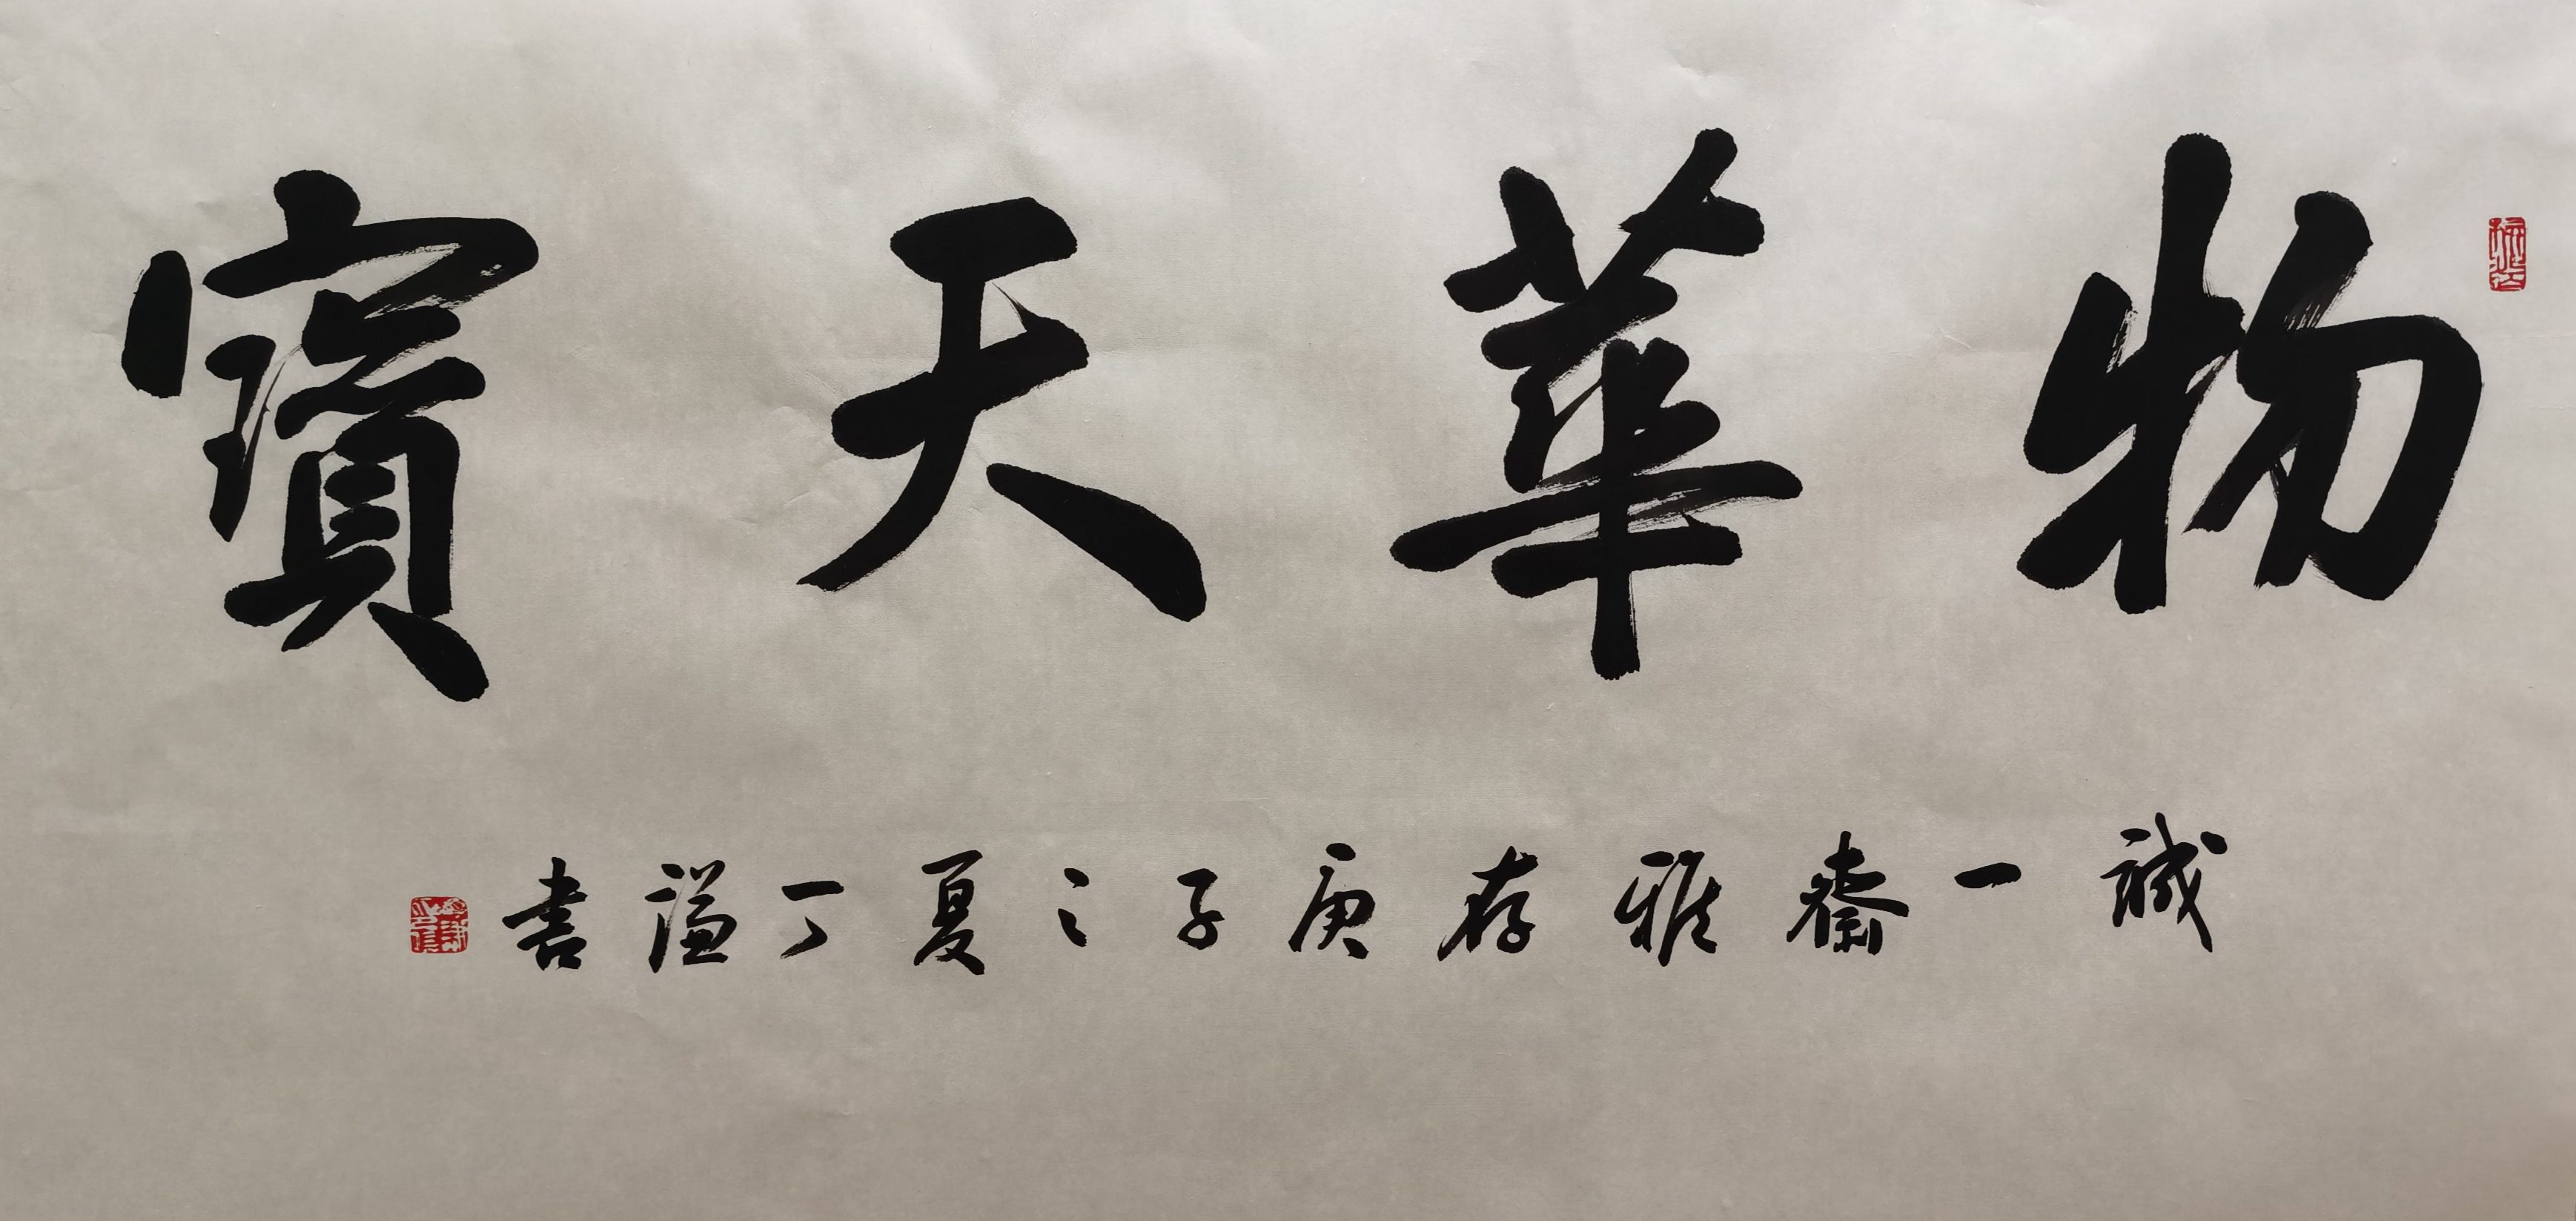 物華天寶
誠一齋雅存庚子之夏丁謐書